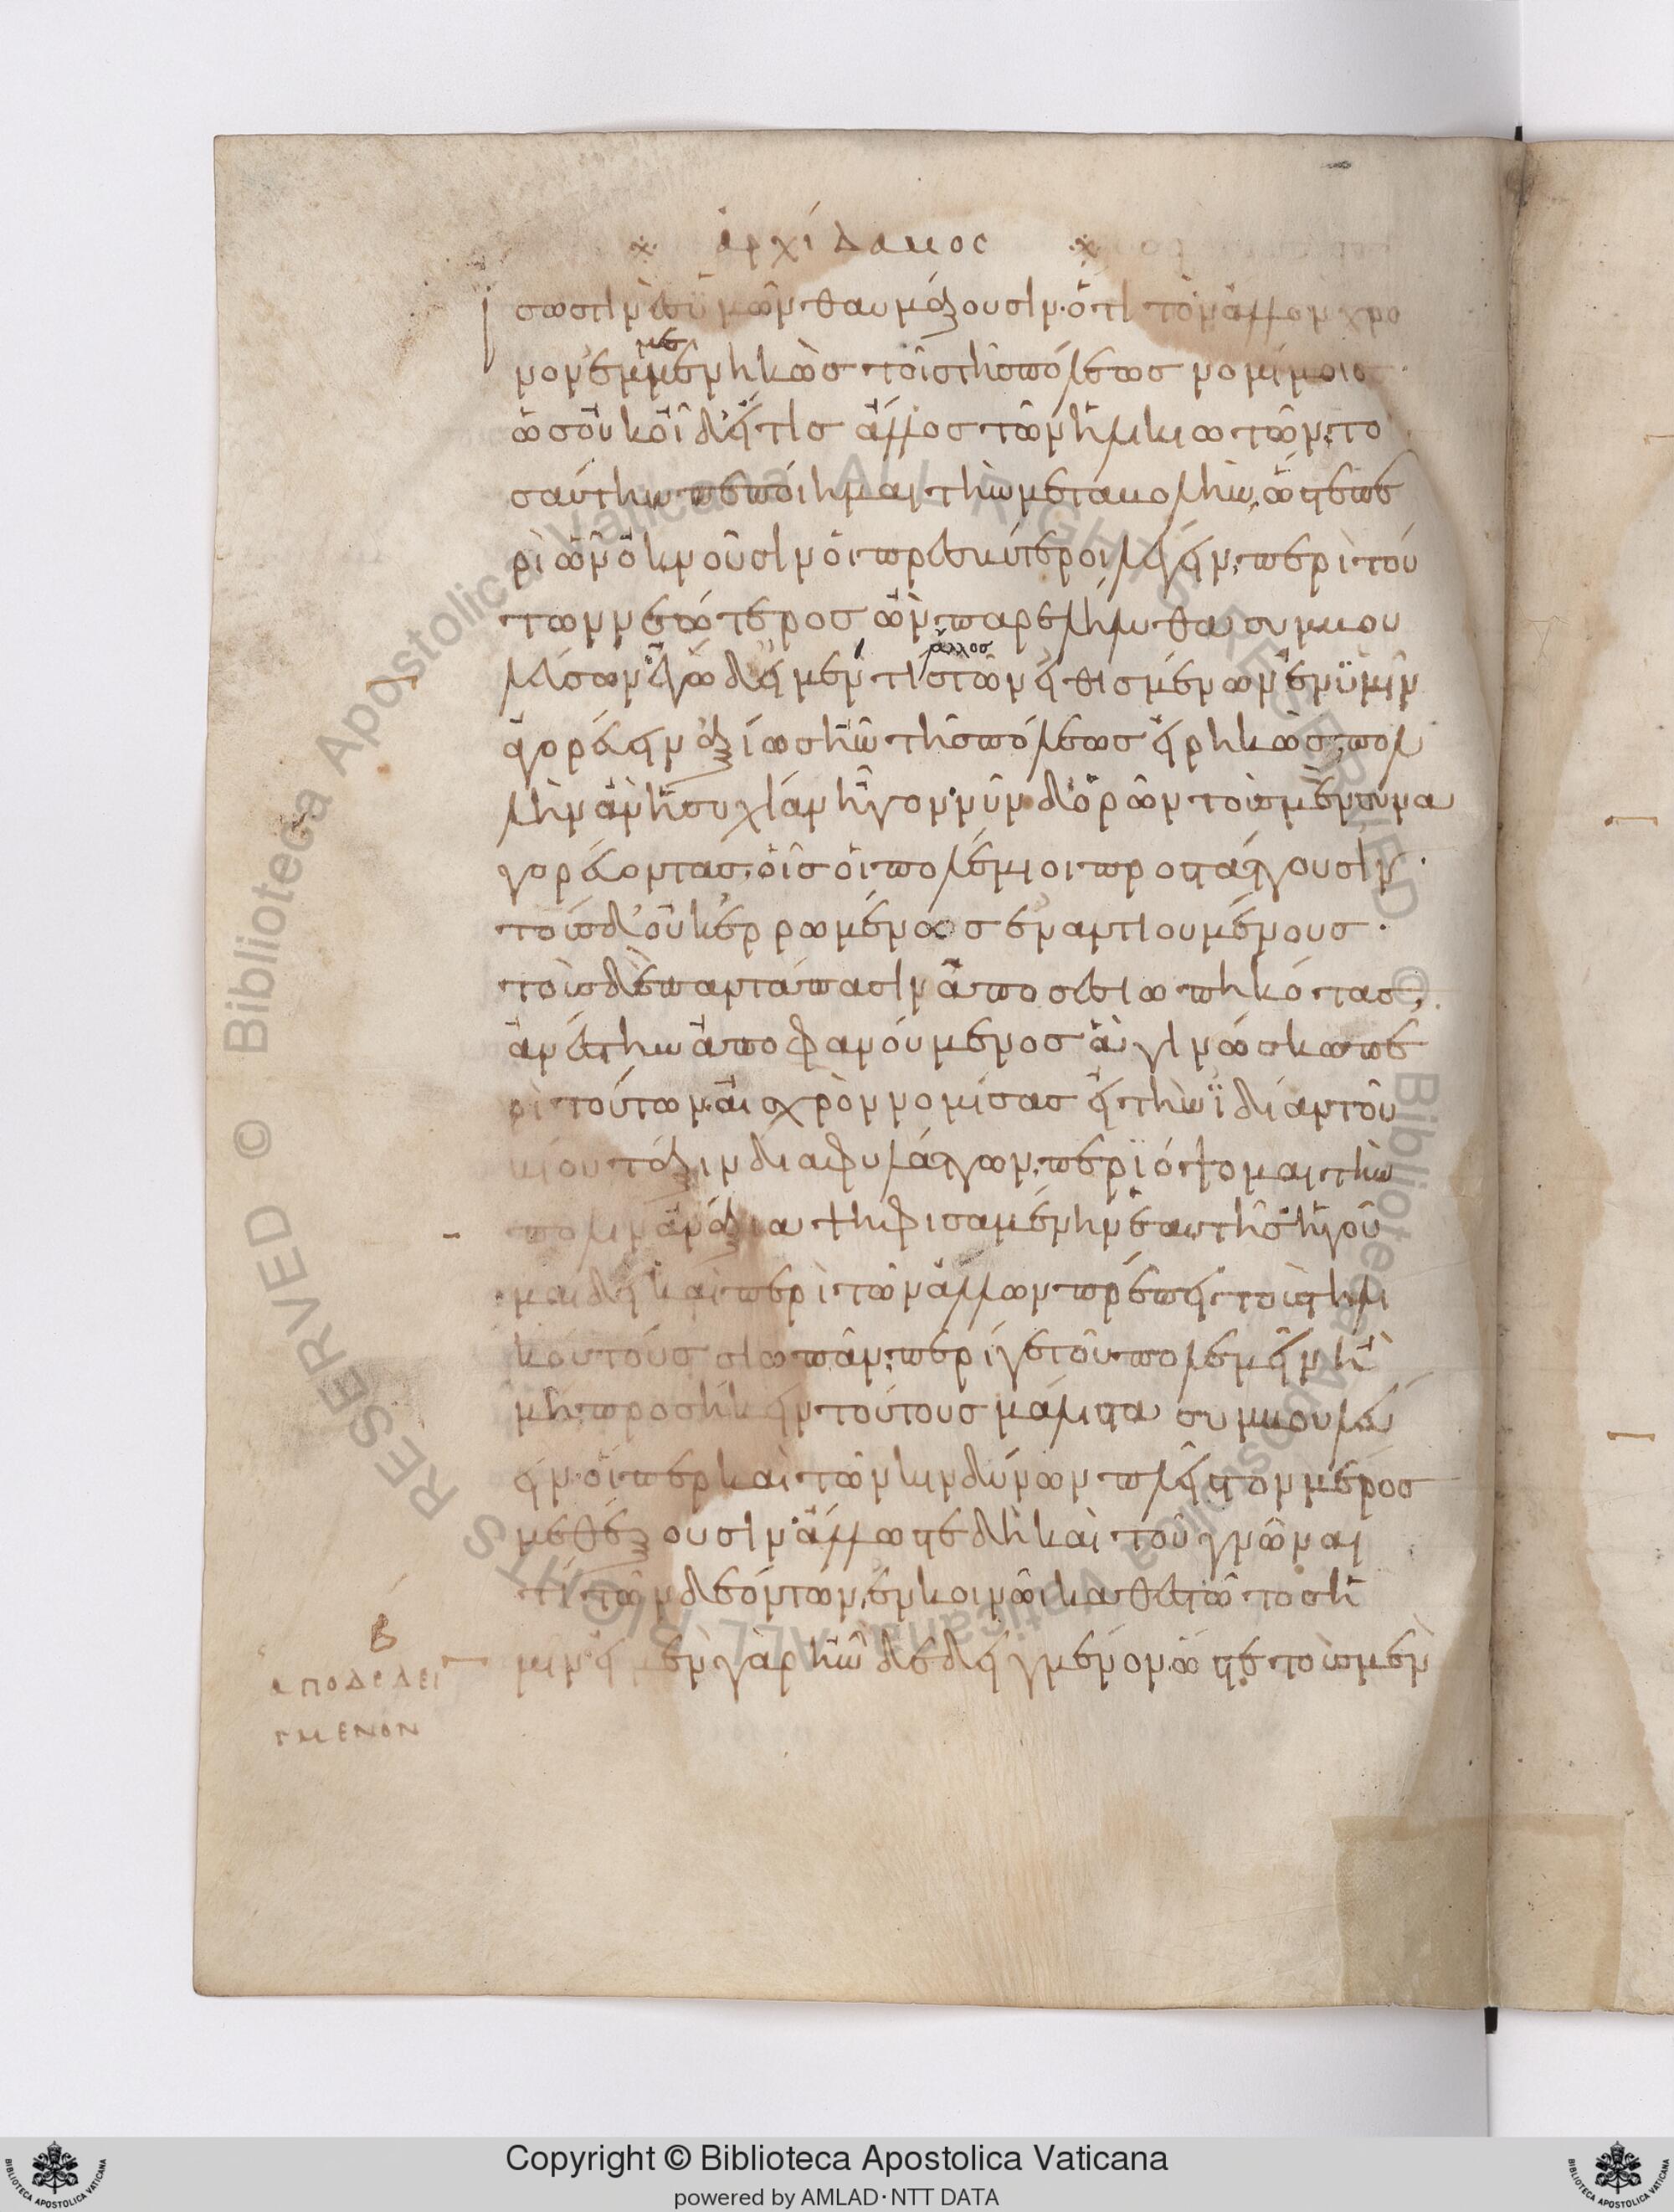 ἀρχίδαμος
ἴσως τινὲς ὑμῶν θαυμάζουσιν· ὅτι τὸν ἄλλον χρό
νον ἐμμεμενηκὼς τοῖς τῆς πόλεως νομίμοις·
ὡς οὐκ οἶδ' εἴ τις ἄλλος τῶν ἡλικιωτῶν, το
σαύτην πεποίημαι τὴν μεταβολήν, ὥστε πε
ρὶ ὧν ὀκνοῦσιν οἱ πρεσβύτεροι λέγειν, περὶ τού
των νεώτερος ὢν παρελήλυθα συμβου
λεύσων· ἐγὼ δ' εἰ μέν τις τῶν εἰθισμένων ἐν ὑμῖν
ἄλλος
ἀγορεύειν ἀξίως ἦν τῆς πόλεως εἰρηκὼς, πολ
λὴν ἂν ἡσυχίαν ἦγον· νῦν δ' ὁρῶν τοὺς μὲν συνα
γορεύοντας, οἷς οἱ πολέμιοι προστάττουσιν·
τοὺς δ' οὐκ ἐρρωμένως ἐναντιουμένους·
τοὺς δὲ παντάπασιν ἀποσεσιωπηκότας,
ἀνέστην ἀποφανούμενος ἃ γινώσκω πε
ρὶ τούτων· αἰσχρὸν νομίσας εἰ τὴν ἰδίαν τοῦ
βίου τάξιν διαφυλάττων, περιόψομαι τὴν
πόλιν ἀνάξια ψηφισαμένην ἑαυτῆς· ἡγοῦ
μαι δ' εἰ καὶ περὶ τῶν ἄλλων πρέπει τοῖς τηλι
κούτους σιωπᾶν, περί γε τοῦ πολεμεῖν ἢ
μὴ προσήκειν τούτους μάλιστα συμβουλεύ
ειν· οἵπερ καὶ τῶν κινδύνων πλεῖστον μέρος
μεθέξουσιν· ἄλλως τε δὴ καὶ τοῦ γνῶναι
τί τῶν δεόντων, ἐν κοινῶι καθεστῶτος ἡ
μῖν· εἰ μὲν γὰρ ἦν δεδειγμένον ὥστε τοὺς μὲν
β
ἀποδεδει
γμενον